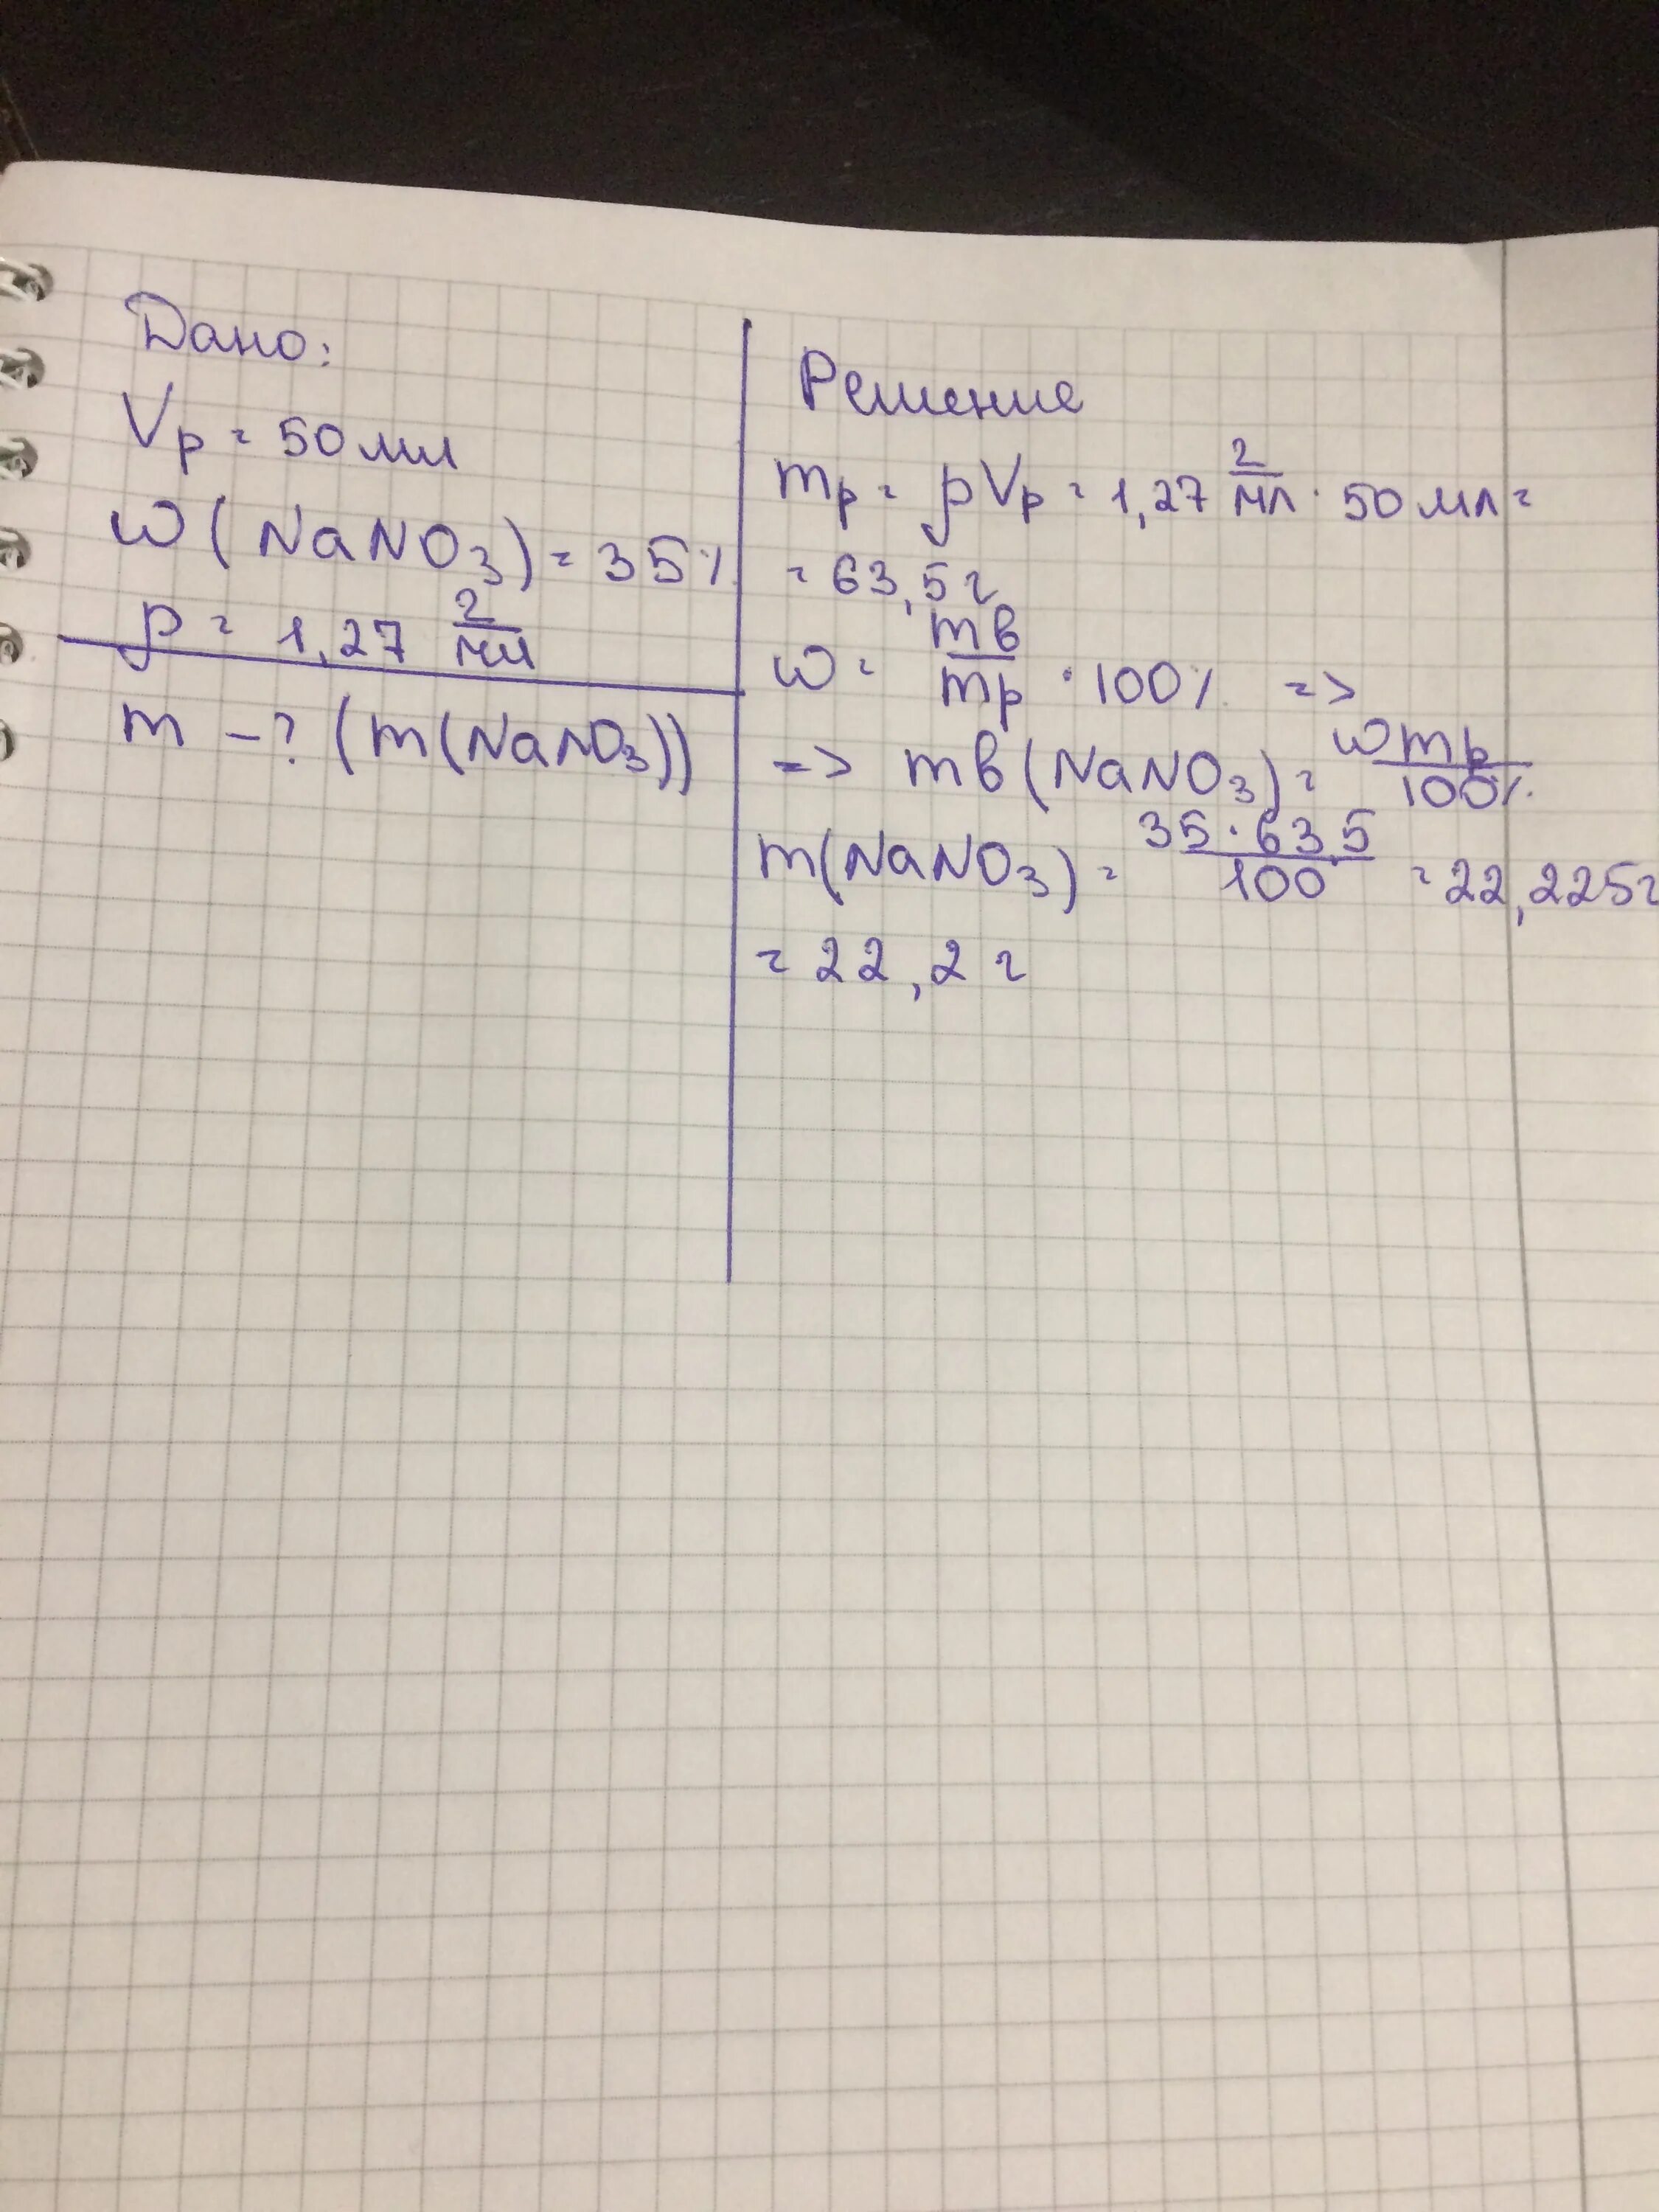 Дано:
Vр = 50 мл
ω(NaNO₃) = 35%
ρ = 1,27 г/мл
m – ? (m(NaNO₃))
Решение
mр = ρVр = 1,27 г/мл · 50 мл =
= 63,5 г
ω = mв/mр · 100% =>
=> mв(NaNO₃) = ωmр/100%
m(NaNO₃) = 35·63,5/100 = 22,225г
= 22,2 г